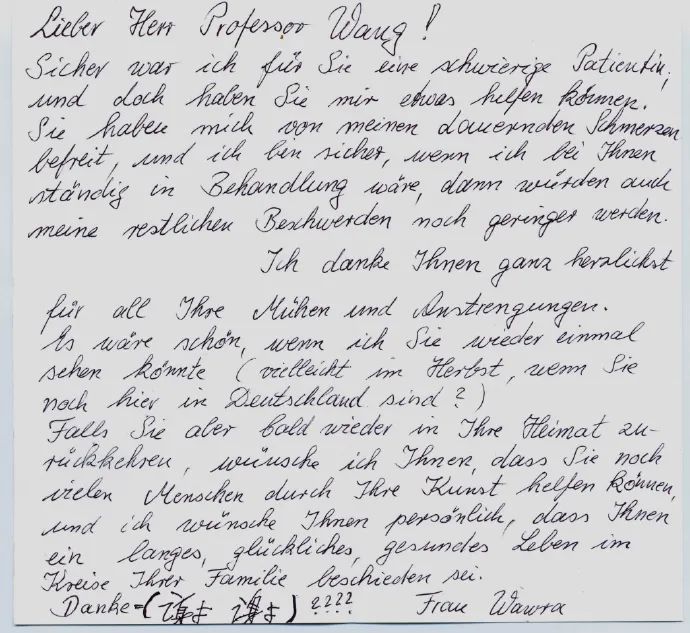 Lieber Herr Professor Wang!
Sicher war ich für Sie eine schwierige Patientin,
und doch haben Sie mir etwas helfen können.
Sie haben mich von meinen dauernden Schmerzen
befreit, und ich bin sicher, wenn ich bei Ihnen
ständig in Behandlung wäre, dann würden auch
meine restlichen Beschwerden noch geringer werden.
Ich danke Ihnen ganz herzlichst
für all Ihre Mühen und Anstrengungen.
Es wäre schön, wenn ich Sie wieder einmal
sehen könnte (vielleicht im Herbst, wenn Sie
noch hier in Deutschland sind?)
Falls Sie aber bald wieder in Ihre Heimat zu-
rückkehren, wünsche ich Ihnen, dass Sie noch
vielen Menschen durch Ihre Kunst helfen können,
und ich wünsche Ihnen persönlich, dass Ihnen
ein langes, glückliches, gesundes Leben im
Kreise Ihrer Familie beschieden sei.
Danke - ( ) ???? Frau Wawra